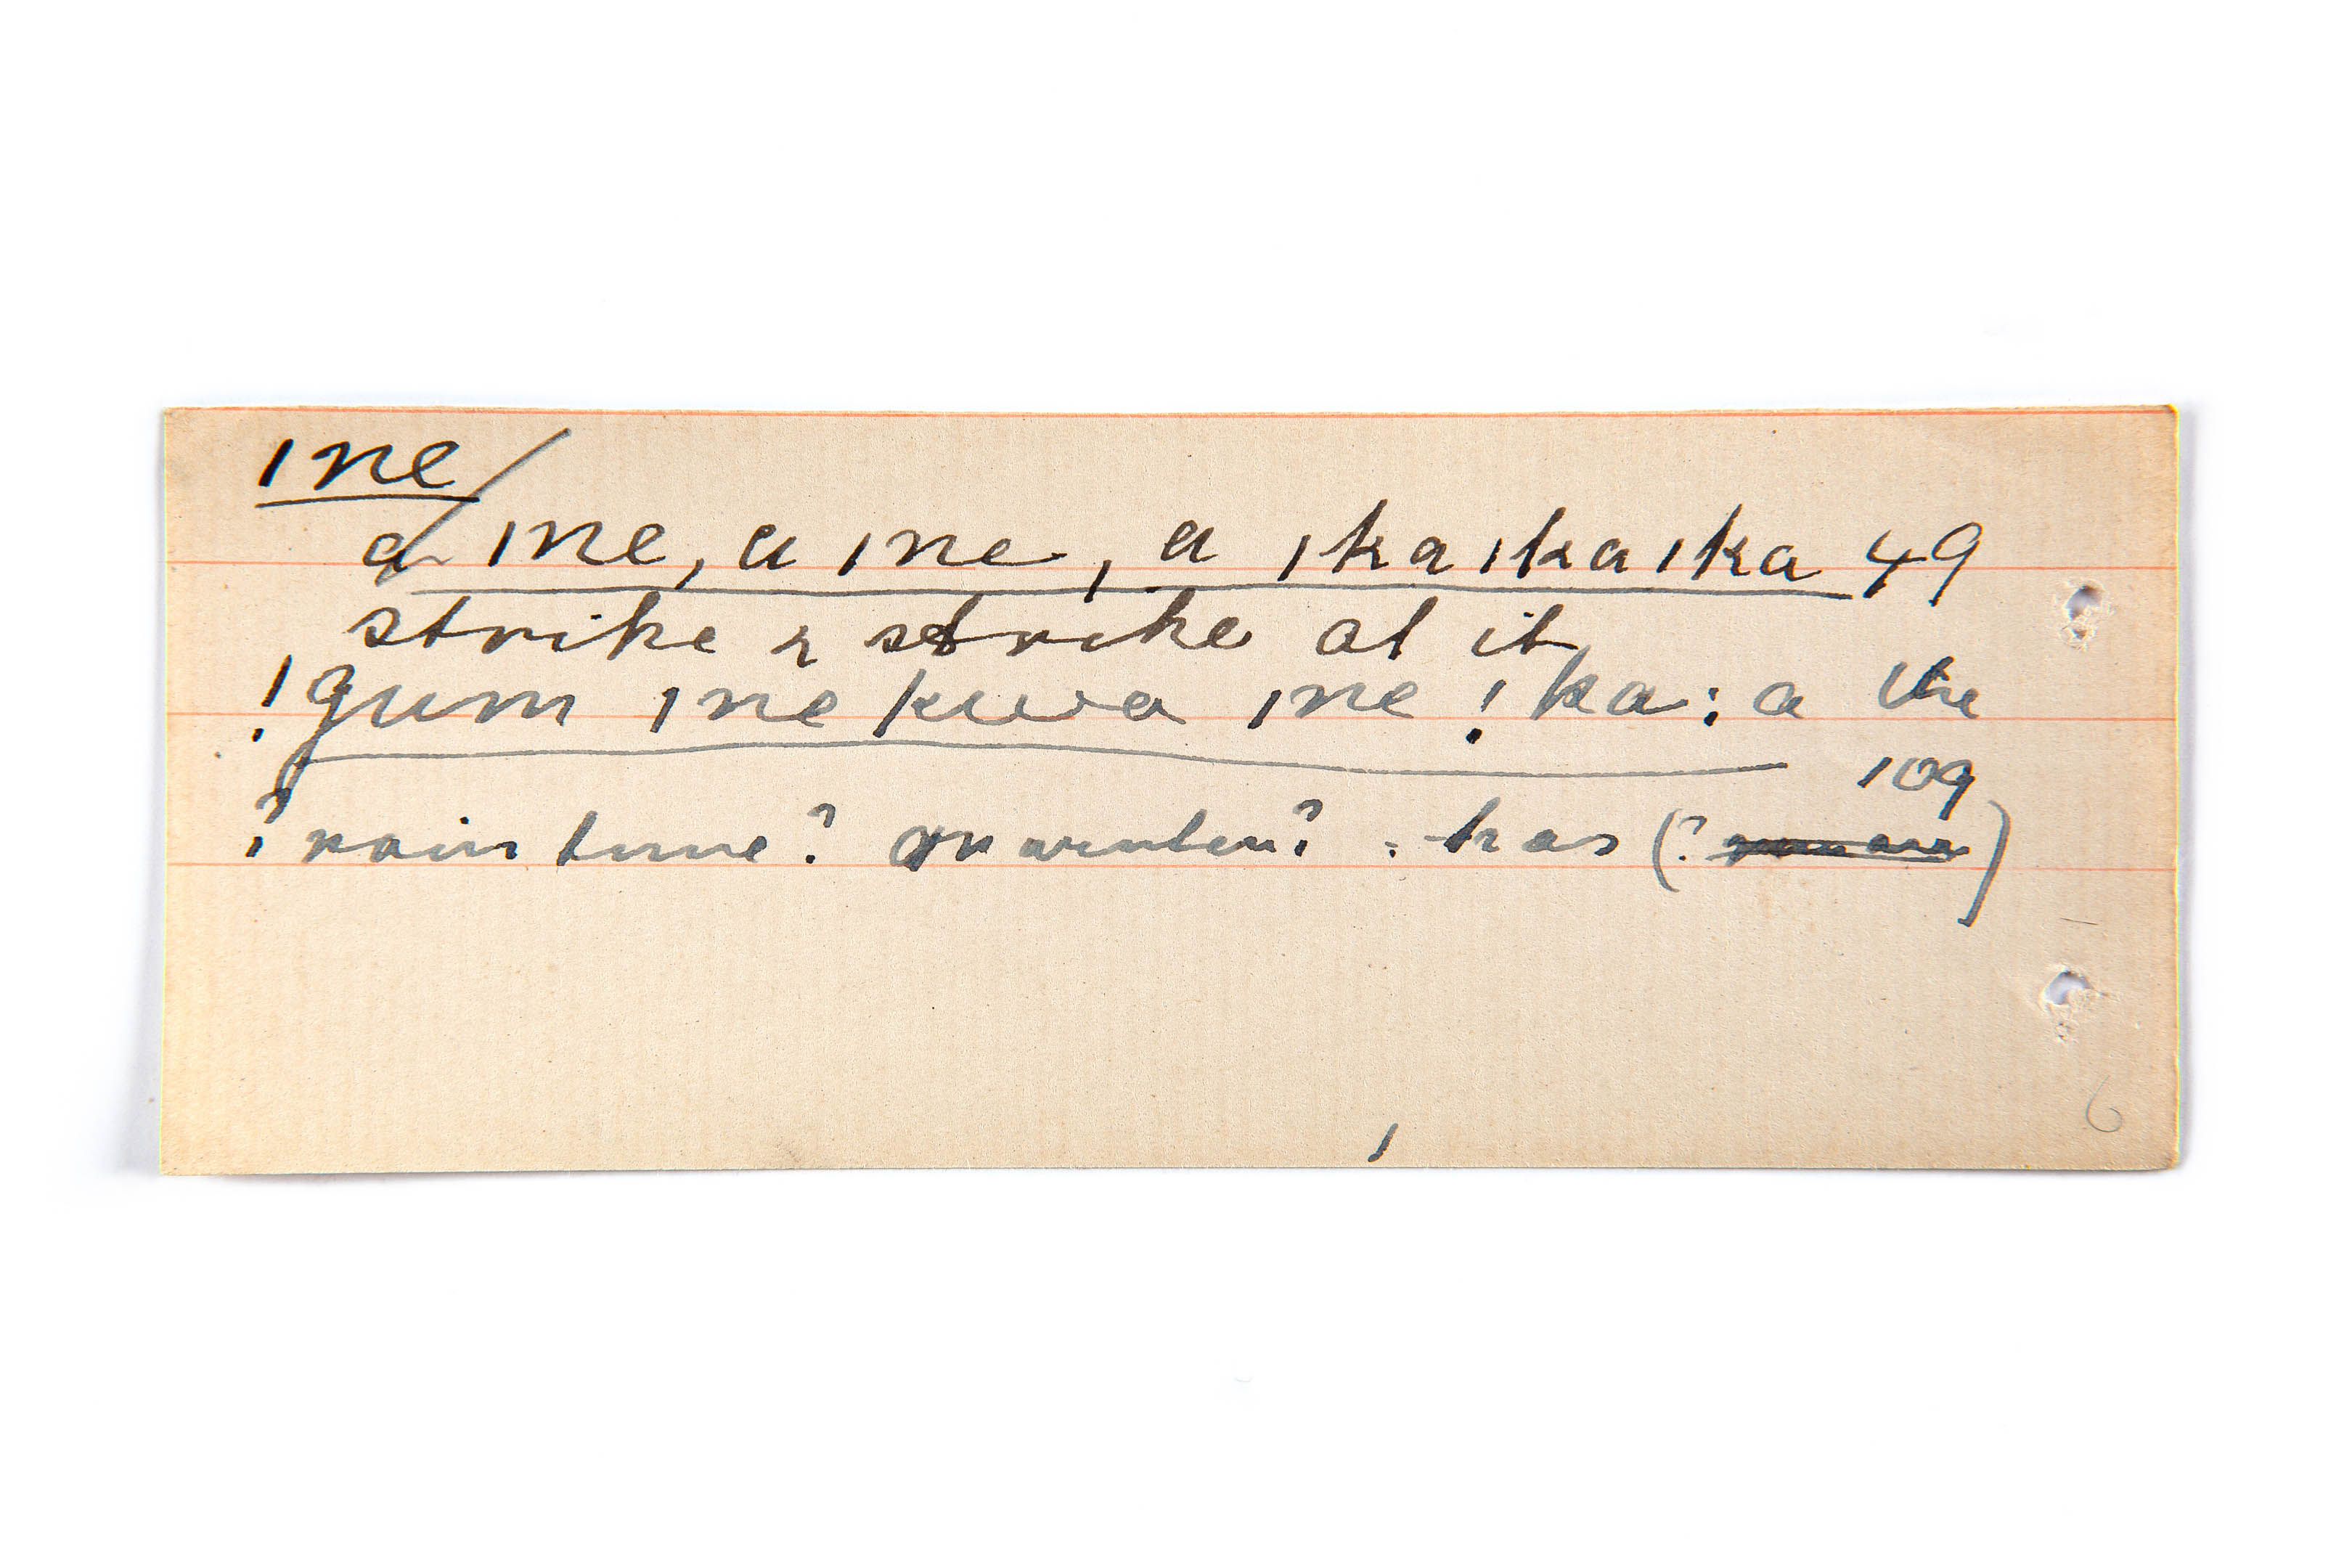 ǀne
a ǀne, a ǀne, a ǀkaǀkaǀka 49
strike & strike at it
!gum ǀne kwa ǀne !ka: a the
109
? rain time? or winter? : has (?
6